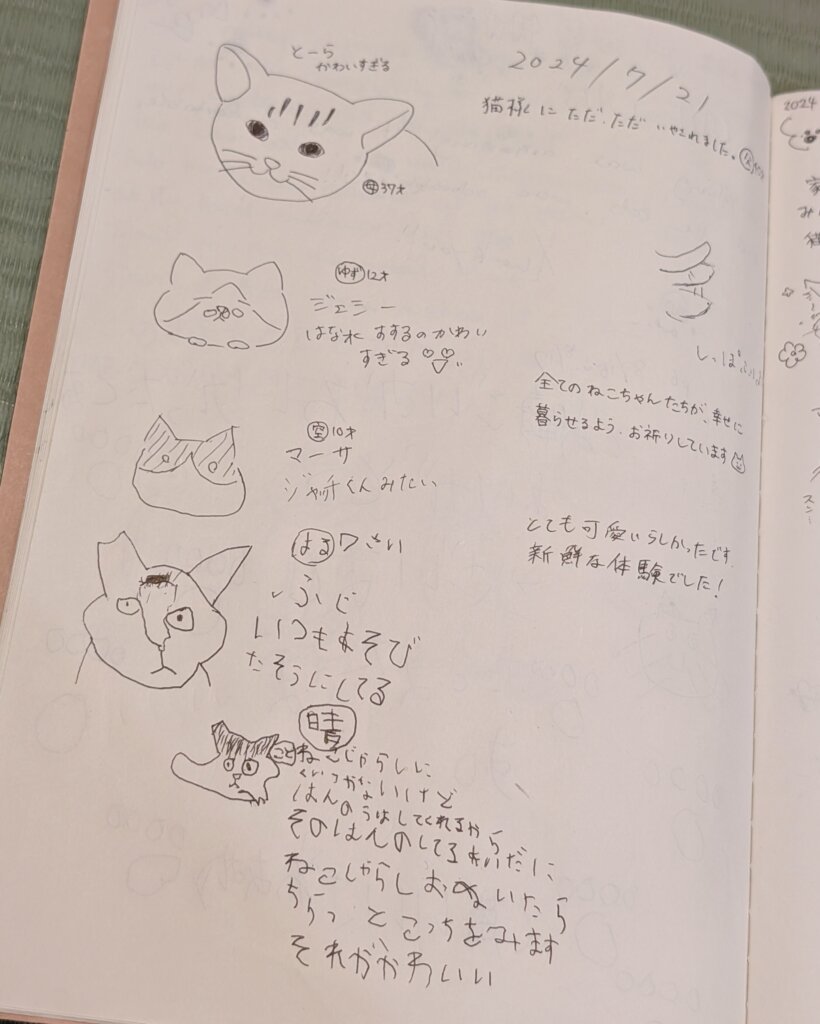 とーら
かわいすぎる
母37才
2024/7/21
猫様に ただ、ただ いやされました。
ゆず12才
ジェシー
はな水 すするの かわい
すぎる
空10才
マーサ
くんみたい
はる7さい
ふじ
いつもあそび
たそうにしてる
晴
こと
ねこじゃらしに
くいつかないけど
はんのうはしてくれるから
そのはんのしてるあいだに
ねこじゃらしおぬいたら
ちらっとこっちをみます
それがかわいい
しっぽ
全てのねこちゃんたちが、幸せに
暮らせるよう、お祈りしています
とても可愛いらしかったです。
新鮮な体験でした!
2024